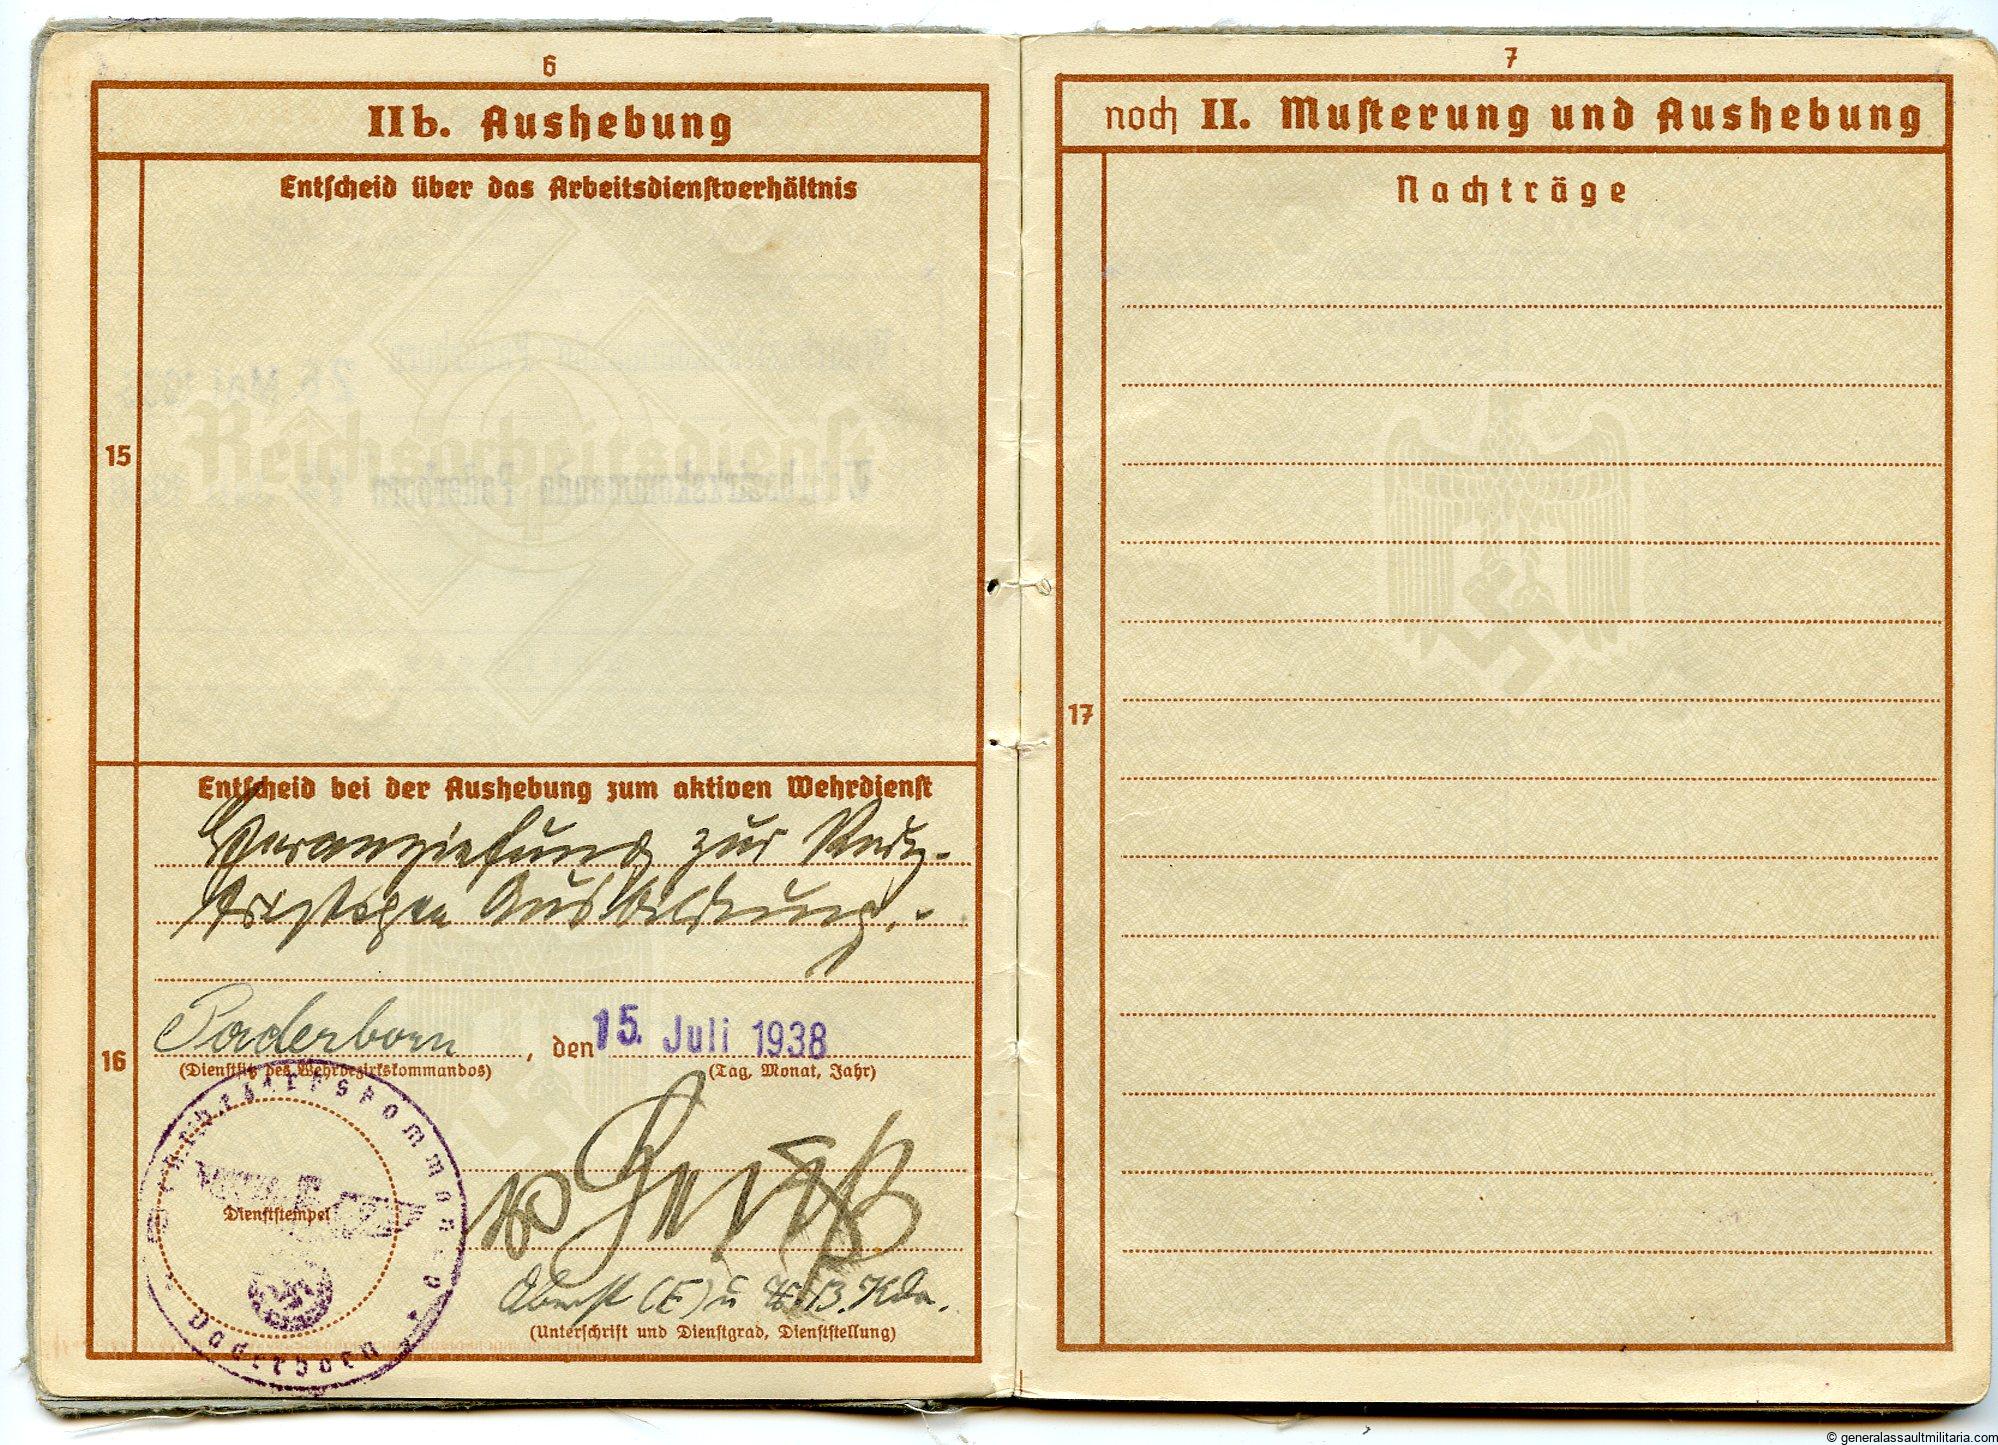 6
IIb. Aushebung
Entscheid über das Arbeitsdienstverhältnis
Reichsarbeitsdienst
15
Entscheid bei der Aushebung zum aktiven Wehrdienst
Heranziehung zur kurz-
fristigen Ausbildung.-
Paderborn, den 15. Juli 1938
(Dienstsitz des Wehrbezirkskommandos) (Tag, Monat, Jahr)
16
Wehrbezirkskommando
Dienststempel
Paderborn
Oberst (E) u. W.B.Kdr.
(Unterschrift und Dienstgrad, Dienststellung)
7
noch II. Musterung und Aushebung
Nachträge
17
© generalassaultmilitaria.com